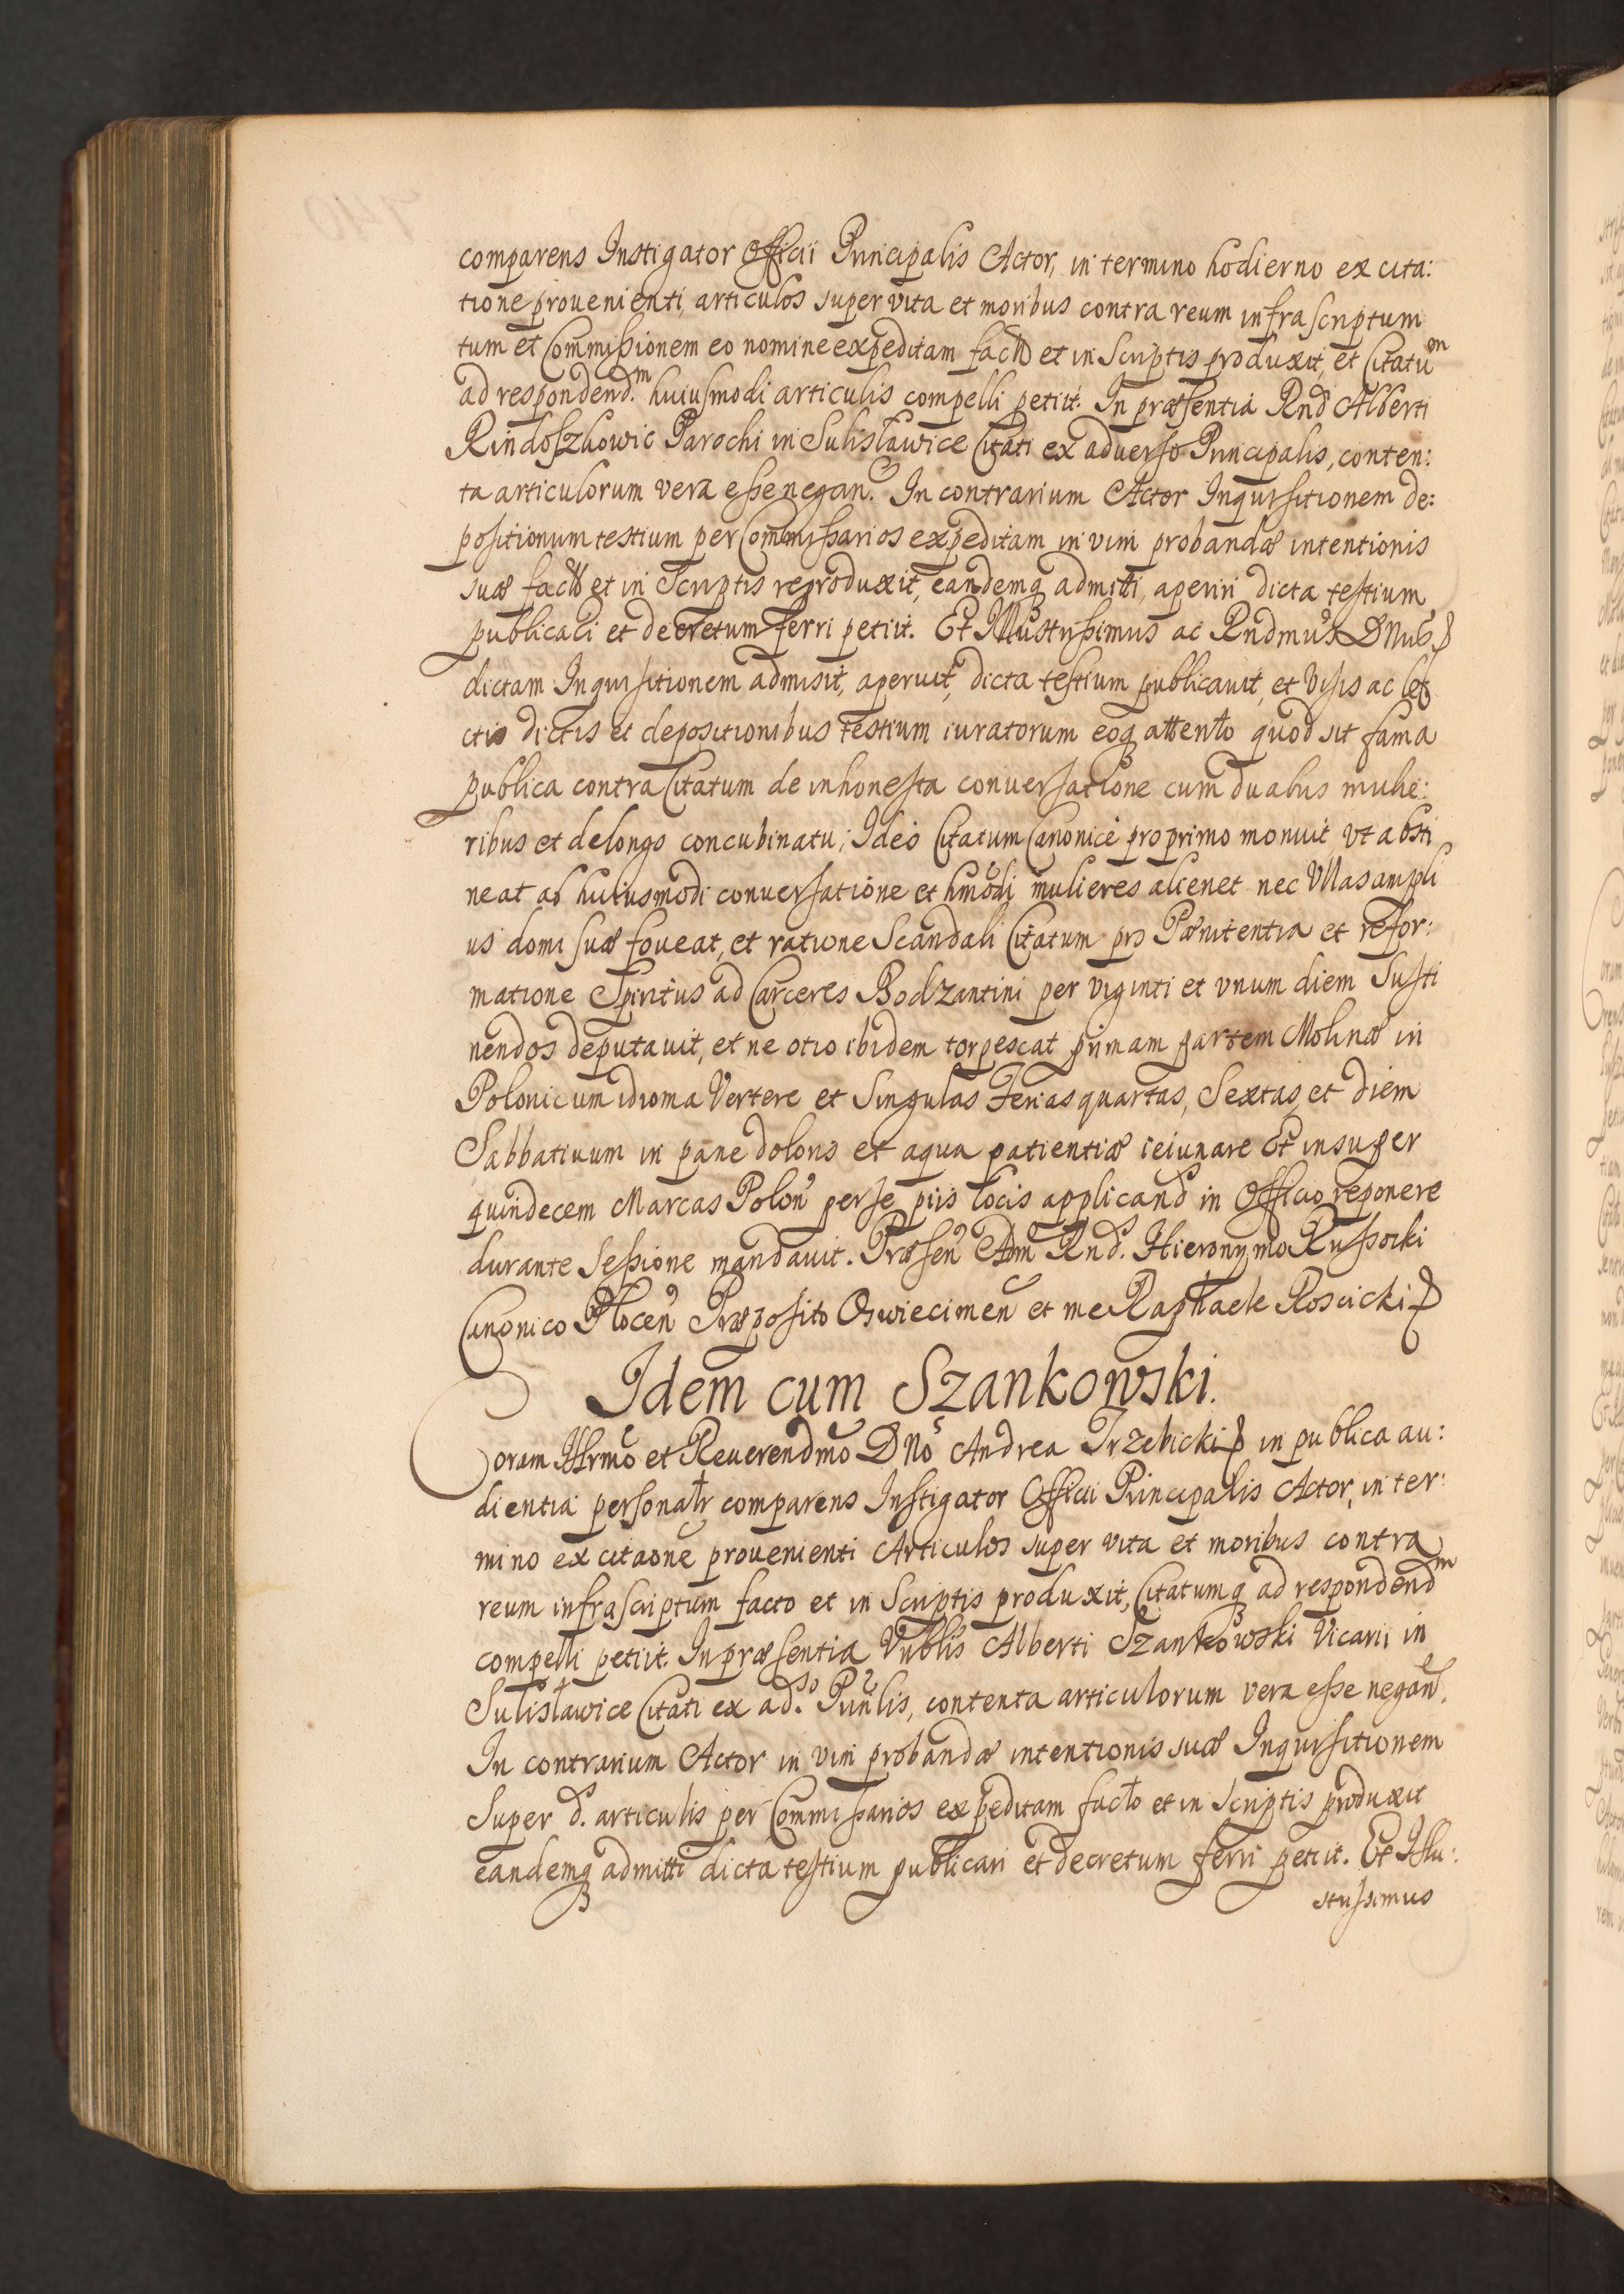 comparens Instigator Officii Principalis Actor, in termino hodierno ex cita:
tione provenienti, articulos super vita et moribus contra reum infrascriptum
tum et Com̃issionem eo nomine expeditam facto et in Scriptis produxit, et Citatuᵐ
ad respondend.ᵐ huiusmodi articulis compelli petiit. In præsentia Rnd̃ Alberti
Parochi in Sulisławice Citati ex adverso Principalis, conten:
ta articulorum vera esse negan̄. In contrarium Actor Inquisitionem de:
positionum testium per Com̃issarios expeditam in vim probandæ intentionis
suæ facto et in Scriptis reproduxit, eandemq admitti, aperiri dicta testium
publicari et decretum ferri petiit. Et Illustrissimus ac Rndmus DNus
dictam Inquisitionem admisit, aperuit, dicta testium publicavit, et visis ac le
ctis dictis et depositionibus testium iuratorum eoq attento quod sit fama
publica contra Citatum de inhonesta conversatione cum duabus mulie:
ribus et de longo concubinatu; Ideo Citatum Canonicè pro primo monuit vt absti
neat ab huiusmodi conversatione et hmõdi mulieres alienet nec Vllas ampli
us domi suæ foveat, et ratione Scandali Citatum pro Pænitentia et refor:
matione Spiritus ad Carceres Bodzantini per viginti et vnum diem Susti
nendos deputavit, et ne otio ibidem torpescat primam partem Molinæ in
Polonicum idioma Vertere et Singulas Ferias quartas, Sextas, et diem
Sabbativum in pane doloris et aqua patientiæ ieiunare Et insuper
quindecem Marcas Polon̄ per se piis locis applicand̄ in Officio reponere
durante Sessione mandavit. Præsen̄ Adm̄ Rnd̄. Hieronymo Russocki
Canonico Plocen̄ Præposito Oswiecimen̄ et me Raphaele Roscicki
Idem cum Szankowski.
Coram Illrmo et Reverendmo DNo Andrea Trzebicki in publica au:
dientia personalr comparens Instigator Officii Principalis Actor, in ter:
mino ex citaõne provenienti Articulos super vita et moribus contra
reum infrascriptum facto et in Scriptis produxit, Citatumq ad respondendᵐ
compelli petiit. In præsentia Vnblis Alberti Szankowski Vicarii in
Sulisławice Citati ex ad.ˢᵒ Prin̄lis, contenta articulorum vera esse negan̄.
In contrarium Actor in vim probandæ intentionis suæ Inquisitionem
Super d. articulis per Com̃issarios expeditam facto et in Scriptis produxit
eandemq admitti dicta testium publicari et decretum ferri petiit. Et Illu:
strissimus